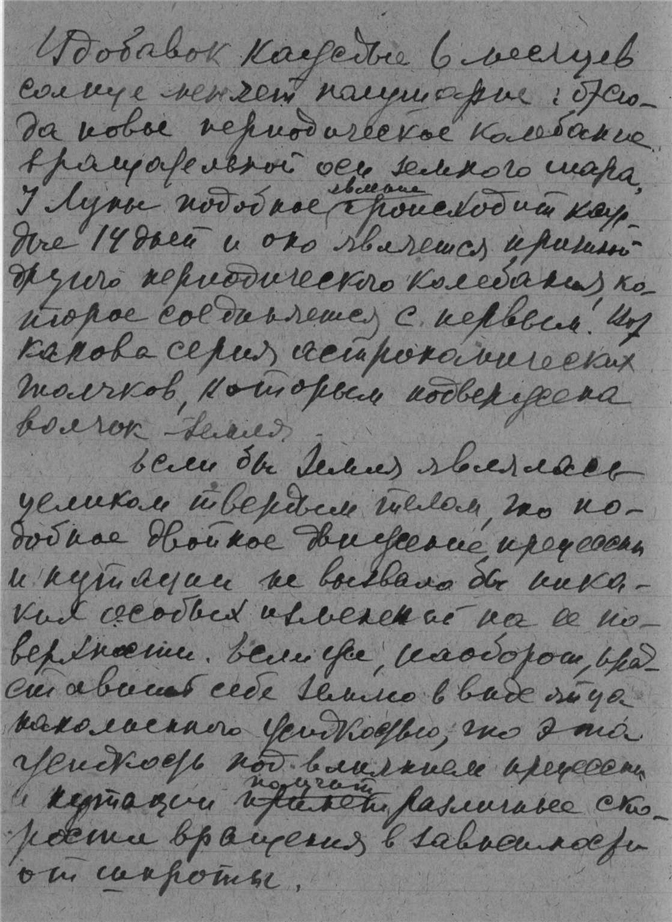 И добавок каждые 6 месяцев
солнце меняет полушарие: отсю-
да новые периодическое колебание
вращательной оси земного шара,
У Луны подобное явление происходит каж-
дые 14 дней и оно является причиной
другого периодического колебания, ко-
торое соединяется с первым. Вот
какова серия астрономических
толчков, которым подвержена
волчок - земля.
Если бы Земля являлась
целиком твердым телом, то по-
добное двойное движение прецессии
и нутации не вызвало бы ника-
ких особых изменений на ее по-
верхности. Если же, наоборот, пред-
ставить себе Землю в виде яйца
наполненного жидкостью, то эта
жидкость под влиянием прецессии
и нутации получит различные ско-
рости вращения в зависимости
от широты.